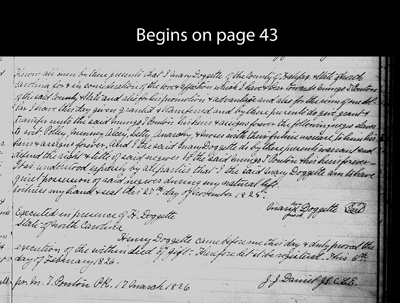 Begins on page 43
Know all men by these presents that I Mary Doggette of the County of Halifax & State of North
Carolina for & in consideration of the love & affection which I have & bear towards Ennings I Ponton
of the said County & State and also for his promotion & advantage and also for the sum of one dol
lar I have this day given granted & transferred and by these presents do give grant &
transfer unto the said Ennings I Ponton his heirs & assigns forever the following negro slaves
to wit Polley, Mummy, Alcey, Letty, & Moses with their future increase to him his
heirs & assigns forever, And I the said Mary Doggette do by these presents warrant and
defend the right & title of said negroes to the said Ennings I Ponton his heirs forever
It is understood expressly by all parties that I the said Mary Doggette am to have
quiet possession of said negroes during my natural life.
Witness my hand & seal this 22th day of November 1825.
Mary Doggette Seal
Executed in presence of H. Doggette
State of North Carolina
Henry Doggette came before me this day & duly proved the
execution of the within Deed of Gift. Therefore let it be registered. This 6th
day of February 1826.
J. J. Daniel
M. T. Ponton P.R. 17 March 1826